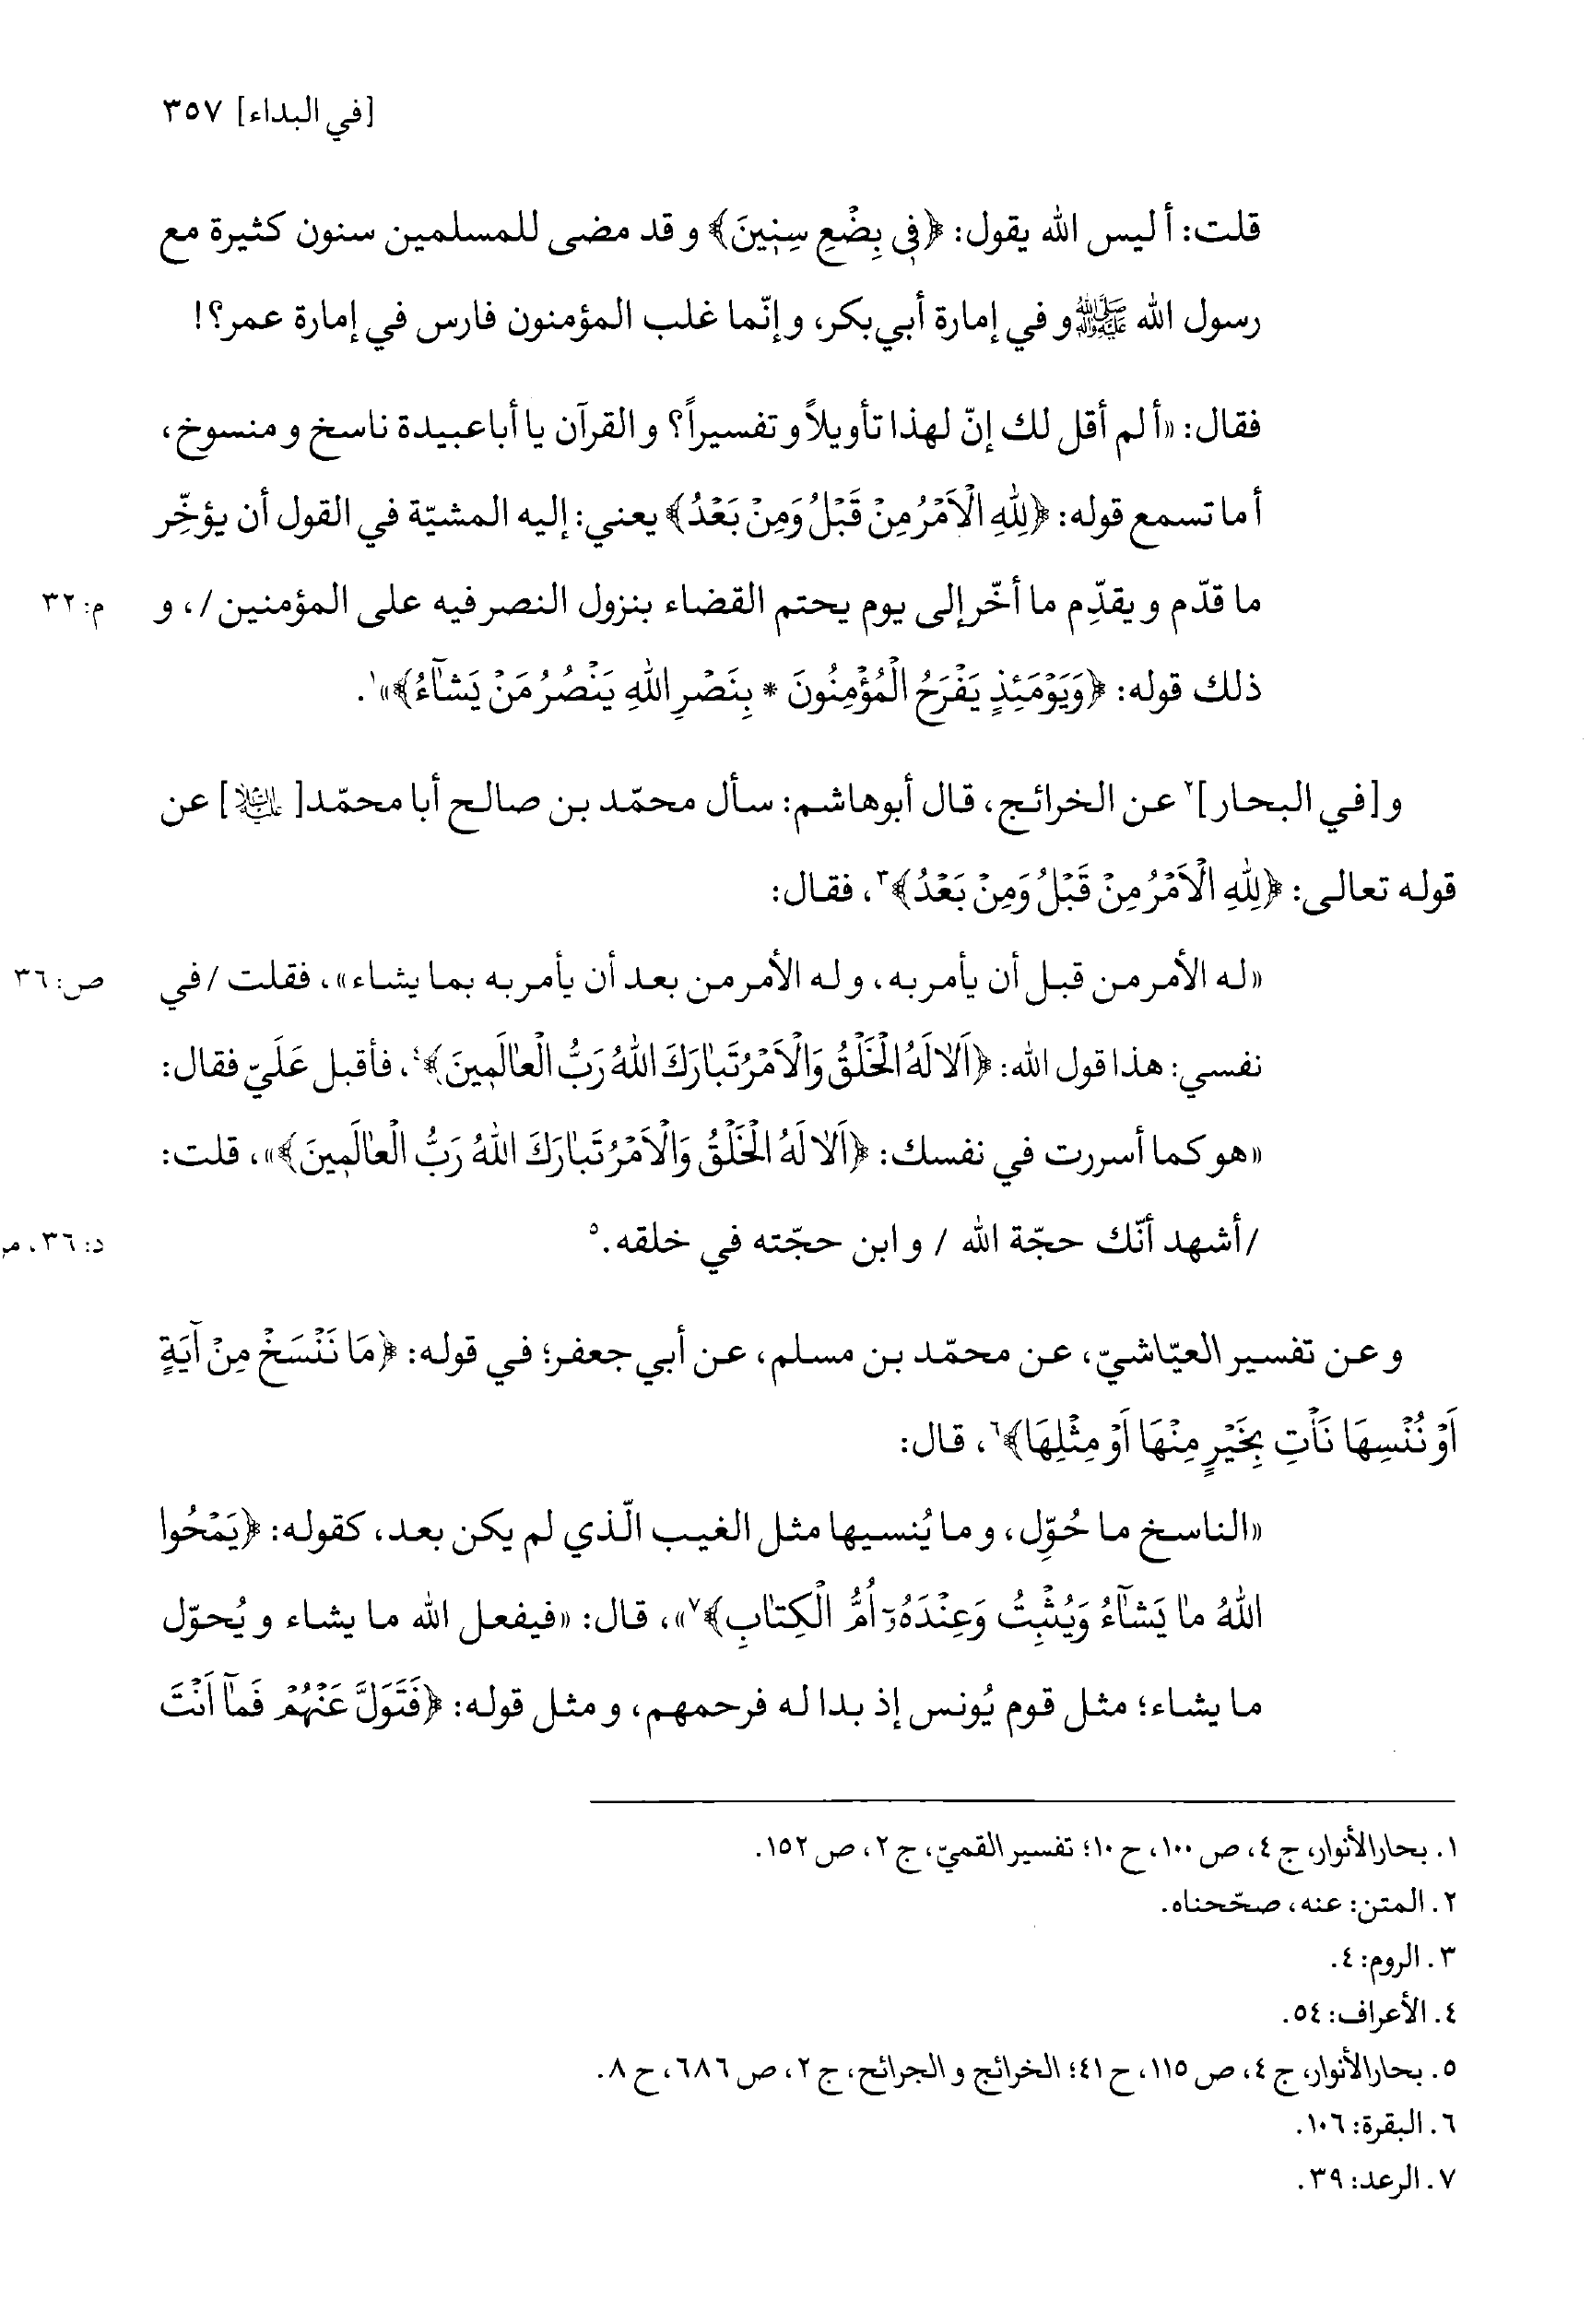 [في البداء] ٣٥٧
قلت: أ ليس الله يقول: ﴿فِي بِضْعِ سِنِينَ﴾ و قد مضى للمسلمين سنون كثيرة مع
رسول الله ﷺ و في إمارة أبي‌بكر، و إنّما غلب المؤمنون فارس في إمارة عمر؟!
فقال: «أ لم أقل لك إنّ لهذا تأويلاً و تفسيراً؟ و القرآن يا أباعبيدة ناسخ و منسوخ،
أ ما تسمع قوله: ﴿لِلّٰهِ الْاَمْرُ مِنْ قَبْلُ وَمِنْ بَعْدُ﴾ يعني: إليه المشيّة في القول أن يؤخِّر
ما قدّم و يقدِّم ما أخّر إلى يوم يحتم القضاء بنزول النصر فيه على المؤمنين/، و
م: ٣٢
ذلك قوله: ﴿وَيَوْمَئِذٍ يَفْرَحُ الْمُؤْمِنُونَ * بِنَصْرِ اللّٰهِ يَنْصُرُ مَنْ يَشٰٓاءُ﴾»١.
و[في البحار]٢ عن الخرائج، قال أبوهاشم: سأل محمّد بن صالح أبا محمّد[ عليه السلام ] عن
قوله تعالى: ﴿لِلّٰهِ الْاَمْرُ مِنْ قَبْلُ وَمِنْ بَعْدُ﴾٣، فقال:
«له الأمر من قبل أن يأمر به، و له الأمر من بعد أن يأمر به بما يشاء»، فقلت /في
ص: ٣٦
نفسي: هذا قول الله: ﴿اَلٰا لَهُ الْخَلْقُ وَالْاَمْرُ تَبٰارَكَ اللّٰهُ رَبُّ الْعٰالَمِينَ﴾٤، فأقبل عَلَيّ فقال:
«هو كما أسررت في نفسك: ﴿اَلٰا لَهُ الْخَلْقُ وَالْاَمْرُ تَبٰارَكَ اللّٰهُ رَبُّ الْعٰالَمِينَ﴾»، قلت:
/أشهد أنّك حجّة الله / و ابن حجّته في خلقه.٥
د: ٣٦،
و عن تفسير العيّاشيّ، عن محمّد بن مسلم، عن أبي جعفر؛ في قوله: ﴿مَا نَنْسَخْ مِنْ آيَةٍ
اَوْ نُنْسِهَا نَاْتِ بِخَيْرٍ مِنْهَا اَوْ مِثْلِهَا﴾٦، قال:
«الناسخ ما حُوِّل، و ما يُنسيها مثل الغيب الّذي لم يكن بعد، كقوله: ﴿يَمْحُوا
اللّٰهُ مٰا يَشٰٓاءُ وَيُثْبِتُ وَعِنْدَهُۥٓ اُمُّ الْكِتٰابِ﴾٧»، قال: «فيفعل الله ما يشاء و يُحوّل
ما يشاء؛ مثل قوم يُونس إذ بدا له فرحمهم، و مثل قوله: ﴿فَتَوَلَّ عَنْهُمْ فَمٰٓا اَنْتَ
١. بحارالأنوار، ج ٤، ص ١٠٠، ح ١٠؛ تفسير القميّ، ج ٢، ص ١٥٢.
٢. المتن: عنه، صحّحناه.
٣. الروم: ٤.
٤. الأعراف: ٥٤.
٥. بحارالأنوار، ج ٤، ص ١١٥، ح ٤١؛ الخرائج و الجرائح، ج ٢، ص ٦٨٦، ح ٨.
٦. البقرة: ١٠٦.
٧. الرعد: ٣٩.